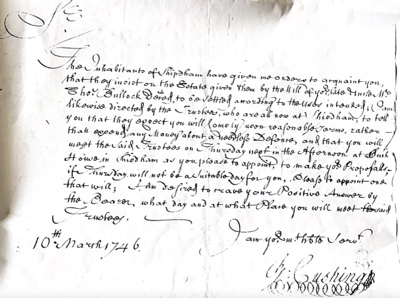 Sr.
The Inhabitants of Shipdham have given me orders to acquaint you,
that they insist on the Estate given them by the Will of yor late Uncle Mr.
Thos. Bullock Deced, to be settled according to the Uses intended; I am
likewise directed by the Trustees, who are all now at Shipdham, to tell
you that they expect you will comply upon reasonable Terms, rather
than expend any Money about a needless Defense, and that you will
meet the Said Trustees on Thursday next in the Afternoon at Such
House, in Shipdham as you please to appoint, to make yor Proposals
if Thursday will not be a Suitable day for you, Please to appoint one
that will; I am desired to receve your Positive Answer by
the Bearer, what day and at what Place you will meet the said
Trustees.
I am yor. most hble Servt.
10th March 1746.
Cushing